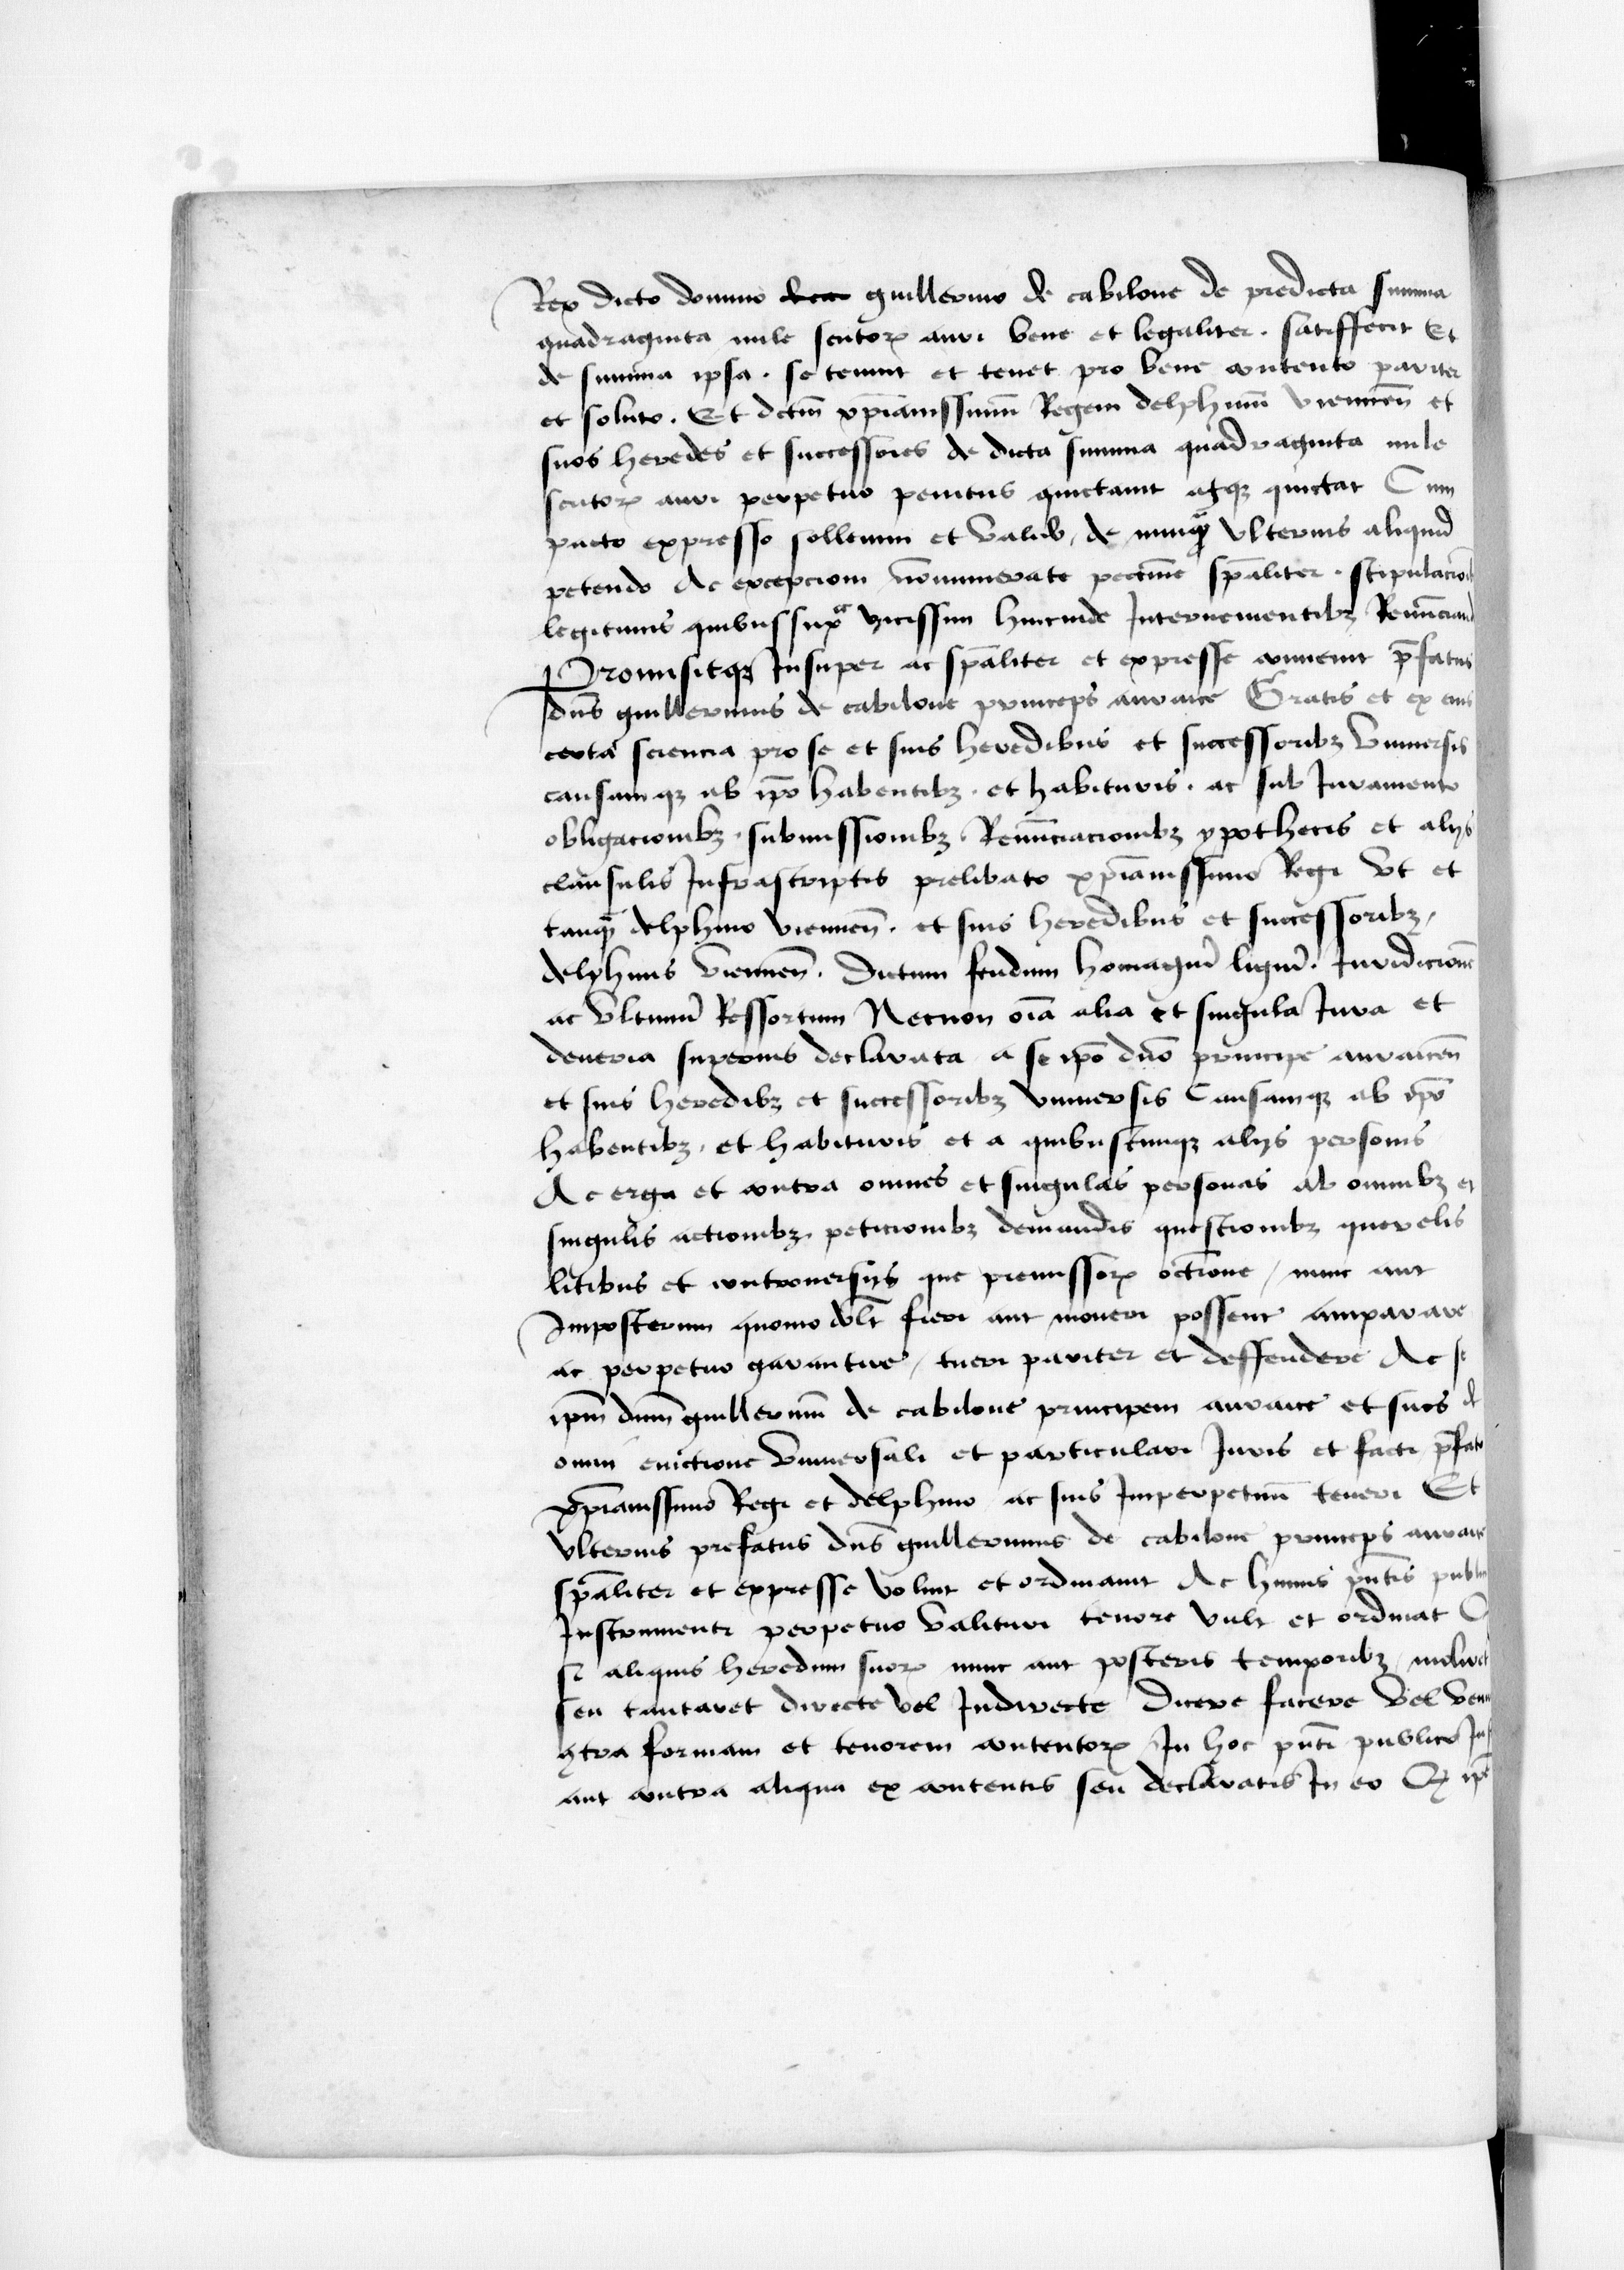 Rex dicto domino guillermo de cabilone de predicta summa
quadraginta mile scutoꝝ auri bene et legaliter . satiffecit Et
de summa ipsa . se tenuit et tenet pro bene contento pariter
et soluto . Et dctm̄ xp̄ianissimū Regem delphinū viennen̄ et
suos heredes et successores de dicta summa quadraginta mile
scutoꝝ auri perpetuo penitus quictauit atqꝫ quictat Cum
pacto expresso sollenni et valido de nunqꝫ vlterius aliquid
petendo Ac excepcioni nōnumerate peccunie sp̄aliter . stipulacioni
legitimis quibussupͣ vicissim hincinde Interuenientibꝫ Renūciand
Promisitqꝫ Insuper ac sp̄aliter et expresse conuenit p̄fatus
dūs guillermus de cabilone princeps auraice Gratis et ex eius
certa sciencia pro se et suis heredibus et successoribꝫ vniuersis
causamqꝫ ab ip̄o habentibꝫ . et habituris . ac sub Iuramento
obligacionibꝫ . submissionibꝫ Renūciacionibꝫ ypothecis et alijs
clausulis Infrascriptis prelibato xp̄ianissimo Regi vt et
tanqꝫ delphino viennen̄ . et suis heredibus et successoribꝫ
delphinis viennen̄ . dictum feudum homagiū ligiū . Iuridicione
ac vltimū Ressortum Necnon oīa alia et singula Iura et
deueria superius declarata a se ip̄o dūo principe auraicen̄
et suis heredibꝫ et successoribꝫ vniuersis Causamqꝫ ab ip̄o
habentibꝫ . et habituris et a quibuscunqꝫ alijs personis
Ac erga et contra omnes et singulas personas ab omnibꝫ et
singulis actionibꝫ . peticionibꝫ demandis questionibꝫ querelis
litibus et controuersijs que premissoꝝ occīone / nunc aut
Imposterum quomodolt̄ fieri aut moueri possent amparare
ac perpetuo garantire / tueri pariter et deffendere Ac se
ip̄m dūm guillermū de cabilone principem auraice et suos de
omni euictione vniuersali et particulari Iuris et facti p̄fato
xp̄ianissimo Regi et delphino ac suis Imperpetuū teneri Et
vlterius prefatus dūs guillermus de cabilone princeps auraice
sp̄aliter et expresse voluit et ordinauit Ac huius pn̄tis publici
Instrumenti perpetuo valituri tenore vult et ordinat
si aliquis heredum suoꝝ nunc aut posteris temporibꝫ
seu tantaret directe vel Indirecte dicere facere vel
ꝯtra formam et tenorem contentoꝝ In hoc pn̄ti publico
aut contra aliqua ex contentis seu declaratis In eo